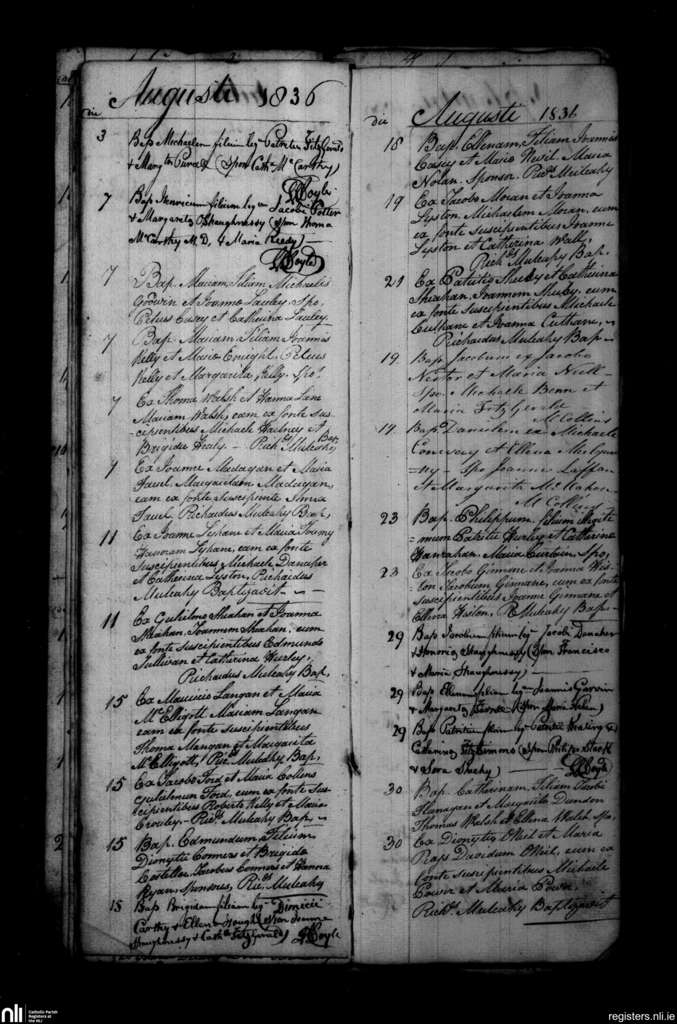 Augusti 1836
die
3 Bap Michaelem filium legm Patritii FitzGerald
& Margte Purcell (Spon Cathe Mc Carthy)
Doyle
7 Bap Henricum filium legm Jacobi Potter
& Margarita OShaughnessy (Spon Thoma
McCarthy M.D. & Maria Reedy)
Doyle
7 Bap. Mariam Filiam Michaelis
Godwin et Joanna Lawley Spo,
Petrus Casey et Catherina Lawley.
7 Bap. Mariam Filiam Joannis
Kelly et Maria Enright, Petrus
Kelly et Margarita Kelly. Spo.
7 Ex Thoma Walsh et Hanna Lane
Mariam Walsh, eam ex fonte sus=
cipientibus Michaele Hartney et
Brigida Healy - Richds Mulcahy Bap.
7 Ex Joanne Madagan et Maria
Margaritam Madagan,
eam ex fonte suscipiente Anna
Richardus Mulcahy Bap,
11 Ex Joanne Lyhane et Maria
Hanoram Lyhane, eam ex fonte
suscipientibus Michaele Danaher
et Catherina Lyston, Richardus
Mulcahy Baptizavit -
11 Ex Gulielmo Sheahan et Joanna
Sheahan, Joannem Sheahan, eum
ex fonte suscipientibus Edmundo
Sullivan et Catherina Hurley,
Richardus Mulcahy Bap.
15 Ex Mauricio Langan et Maria
McElligott Mariam Langan
eam ex fonte suscipientibus
Thoma Mangan et Margarita
McElligott, Richds Mulcahy Bap,
15 Ex Jacobo Ford et Maria Collens
Gulielmum Ford, eum ex fonte sus=
cipientibus Roberto Kelly et Maria
Crowley - Richds Mulcahy Bap -
15 Bap. Edmundum Filium
Dionytii Connors et Brigida
Costelloe, Jacobus Connors et Hanna
Ryan, Sponsores, Ricds Mulcahy
18 Bap Brigidam filiam legm
Carthy & Ellen (Spon Joanne
Shaughnessy & Cathe FitzGerald) Doyle
Augusti 1836
die
18 Bap. Ellenam, Filiam Joannis
Casey et Maria Maria
Nolan Sponsor. Ricds Mulcahy
19 Ex Jacobo Moran et Joanna
Lyston Michaelem Moran, eum
ex fonte suscipientibus Joanne
Lyston et Catherina Wall,
Richds Mulcahy Bap.
21 Ex Patritio Sheedy et Catherina
Sheahan, Joannem Sheedy, eum
ex fonte suscipientibus Michaele
Culhane et Joanna Culhane,
Richardus Mulcahy Bap -
19 Bap Jacobum ex Jacobo
et Maria
Spo. Michaele Benn et
Maria FitzGerald
M Collins
14 Bap. Danielem ex Michaele
Conway et Ellena
Spo Joannis Laffan
et Margarita McMahon
M Coll
23 Bap. Philippum filium
Patritii Hurley et Catherina
Hanrahan. Maria Curtin Spo,
23 Ex Jacobo Ginnane et Joanna His=
ton Jacobum Ginnane, eum ex fonte
suscipientibus Joanne Ginnane et
Ellena Histon, R Mulcahy Bap -
29 Bap Jacobum filium legm Jacobi Danaher
& Honoria Shaughnessy (Spon Francisco
& Maria Shaughnessy) -
29 Bap Ellenam filiam legm Joannis Garvin
& Margarita (Spon Maria)
29 Bap Patritium filium legm Patritii Keating &
Catherina FitzSimmons (Spon Philippo
& Sheehy) - Doyle
30 Bap. Catherinam, Filiam Jacobi
Flanagan et Margarita Dundon
Thomas Welsh et Ellena Welsh, Spo,
30 Ex Dionytio O'Neil et Maria
Davidem O'Neil, eum ex
fonte suscipientibus Michaele
Power et Maria Power
Richds Mulcahy Baptizavit
nli
Catholic Parish
Registers at
the NLI
registers.nli.ie